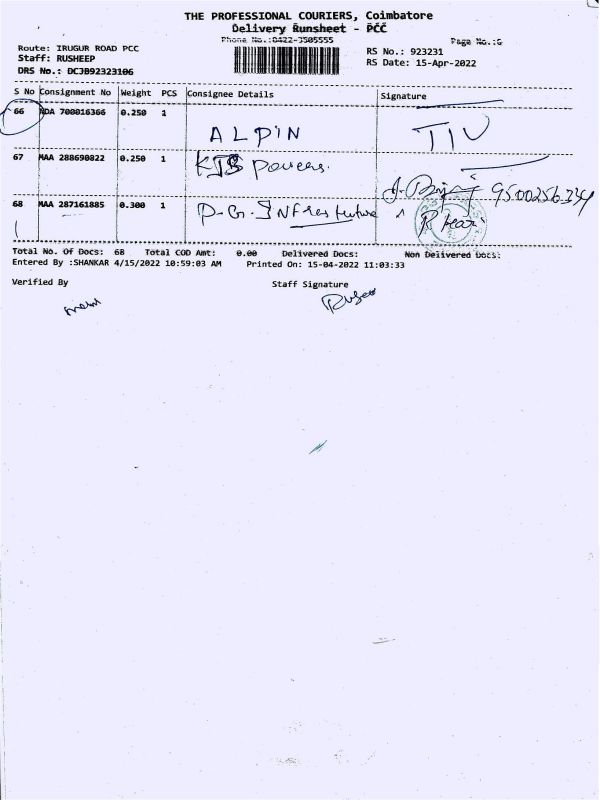 THE PROFESSIONAL COURIERS, Coimbatore
Delivery Runsheet - PCC
Phone No.:0422-3505555
Page No.:6
Route: IRUGUR ROAD PCC
Staff: RUSHEEP
DRS No.: DCJB92323106
RS No.: 923231
RS Date: 15-Apr-2022
S No Consignment No Weight PCS Consignee Details Signature
66 NDA 700016366 0.250 1 ALPIN
67 MAA 288690822 0.250 1 KJB Powers.
9500256334
68 MAA 287161885 0.300 1 P-G-
Total No. Of Docs: 68 Total COD Amt: 0.00 Delivered Docs: Non Delivered Docs:
Entered By :SHANKAR 4/15/2022 10:59:03 AM Printed On: 15-04-2022 11:03:33
Verified By Staff Signature